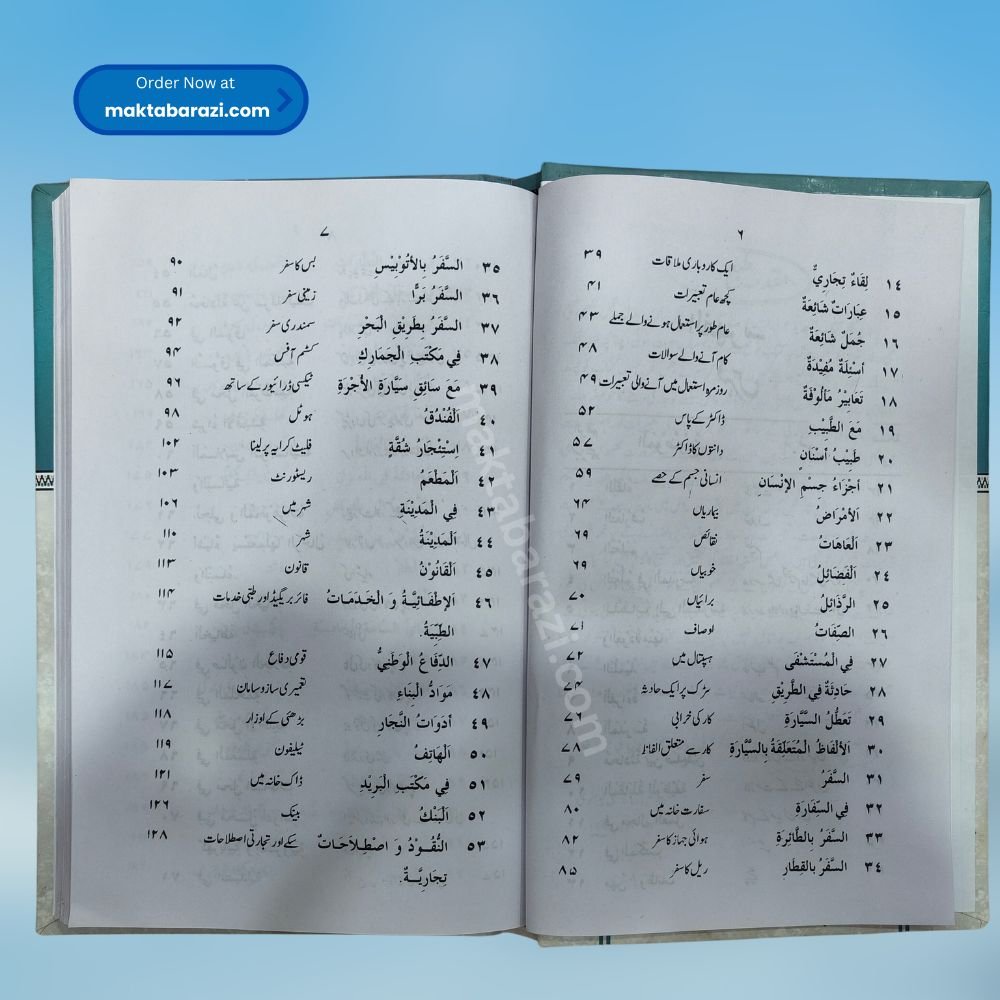 Order Now at
maktabarazi.com
٦
١٤ لِقَاءٌ تِجَارِيٌّ ایک کاروباری ملاقات ٣٩
١٥ عِبَارَاتٌ شَائِعَةٌ کچھ عام تعبیرات ٤١
١٦ جُمَلٌ شَائِعَةٌ عام طور پر استعمال ہونے والے جملے ٤٣
١٧ أَسْئِلَةٌ مُفِيْدَةٌ کام آنے والے سوالات ٤٨
١٨ تَعَابِيْرُ مَألُوْفَةٌ روزمرہ استعمال میں آنے والی تعبیرات ٤٩
١٩ مَعَ الطَّبِيْبِ ڈاکٹر کے پاس ٥٢
٢٠ طَبِيْبُ أَسْنَانٍ دانتوں کا ڈاکٹر ٥٧
٢١ أَجْزَاءُ جِسْمِ الإِنْسَانِ انسانی جسم کے حصے ٥٩
٢٢ اَلأَمْرَاضُ بیماریاں ٦٤
٢٣ اَلْعَاهَاتُ نقائص ٦٩
٢٤ اَلْفَضَائِلُ خوبیاں ٦٩
٢٥ الرَّذَائِلُ برائیاں ٧٠
٢٦ الصِّفَاتُ اوصاف ٧١
٢٧ فِي الْمُسْتَشْفَى ہسپتال میں ٧٢
٢٨ حَادِثَةٌ فِي الطَّرِيْقِ سڑک پر ایک حادثہ ٧٤
٢٩ تَعَطُّلُ السَّيَّارَةِ کار کی خرابی ٧٦
٣٠ اَلأَلْفَاظُ الْمُتَعَلِّقَةُ بِالسَّيَّارَةِ کار سے متعلق الفاظ ٧٨
٣١ السَّفَرُ سفر ٧٩
٣٢ فِي السِّفَارَةِ سفارت خانہ میں ٨٠
٣٣ السَّفَرُ بِالطَّائِرَةِ ہوائی جہاز کا سفر ٨٢
٣٤ السَّفَرُ بِالقِطَارِ ریل کا سفر ٨٥
٧
٣٥ السَّفَرُ بِالأُتُوْبِيْسِ بس کا سفر ٩٠
٣٦ السَّفَرُ بَرًّا زمینی سفر ٩١
٣٧ السَّفَرُ بِطَرِيْقِ الْبَحْرِ سمندری سفر ٩٢
٣٨ فِي مَكْتَبِ الْجَمَارِكِ کسٹم آفس ٩٤
٣٩ مَعَ سَائِقِ سَيَّارَةِ الأُجْرَةِ ٹیکسی ڈرائیور کے ساتھ ٩٦
٤٠ اَلْفُنْدُقُ ہوٹل ٩٨
٤١ اِسْتِئْجَارُ شُقَّةٍ فلیٹ کرایہ پر لینا ١٠٢
٤٢ اَلْمَطْعَمُ ریسٹورنٹ ١٠٣
٤٣ فِي الْمَدِيْنَةِ شہر میں ١٠٦
٤٤ اَلْمَدِيْنَةُ شہر ١١٠
٤٥ اَلْقَانُوْنُ قانون ١١٣
٤٦ اَلإِطْفَائِيَّةُ وَ الْخَدَمَاتُ فائر بریگیڈ اور طبی خدمات ١١٤
الطِّبِّيَّةُ.
٤٧ الدِّفَاعُ الْوَطَنِيُّ قومی دفاع ١١٥
٤٨ مَوَادُّ الْبِنَاءِ تعمیری ساز و سامان ١١٧
٤٩ أَدَوَاتُ النَّجَّارِ بڑھئی کے اوزار ١١٨
٥٠ اَلْهَاتِفُ ٹیلیفون ١١٩
٥١ فِي مَكْتَبِ الْبَرِيْدِ ڈاک خانہ میں ١٢١
٥٢ اَلْبَنْكُ بینک ١٢٦
٥٣ النُّقُوْدُ وَ اصْطِلَاحَاتٌ سکے اور تجارتی اصطلاحات ١٢٨
تِجَارِيَّةٌ.
maktabarazi.com